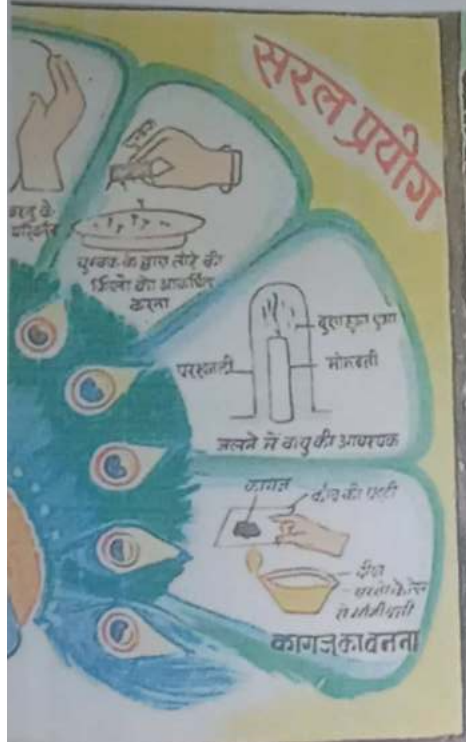 सरल प्रयोग
चुम्बक
चुम्बक के द्वारा लोहे की
किलो को आकर्षित
करना
बुझा हुआ धुआँ
परखनली
मोमबत्ती
जलने में वायु की आवश्यक
कागज
काँच की पट्टी
दीया
सरसो के तेल
कागज का बनना